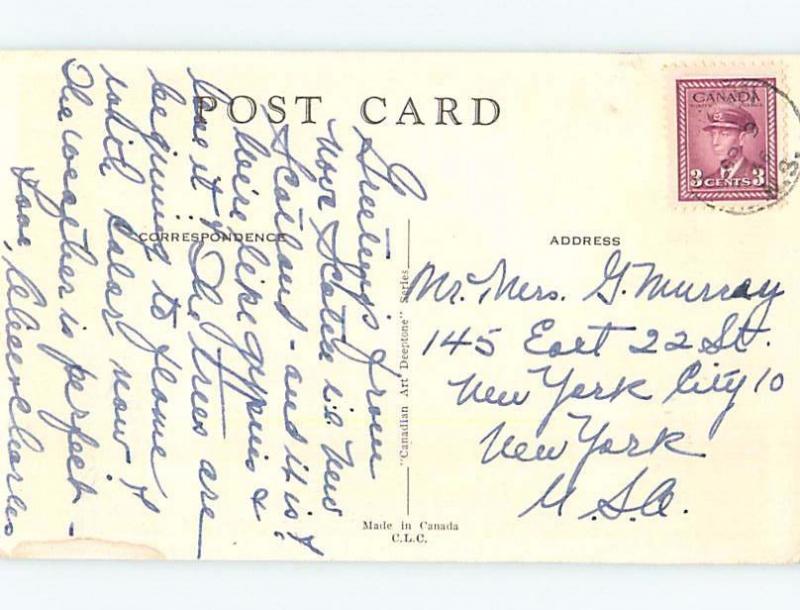 POST CARD
CANADA
3 CENTS 3
N.S.
CORRESPONDENCE
ADDRESS
Greetings from
Nova Scotia i.e. New
Scotland - and it is!
We're like gypsies &
love it! The trees are
beginning to flame
with color now &
the weather is perfect -
Love, & Charles
Mr. Mrs. G. Murray
145 East 22 St.
New York City 10
New York
U.S.A.
"Canadian Art Deeptone" Series
Made in Canada
C.L.C.